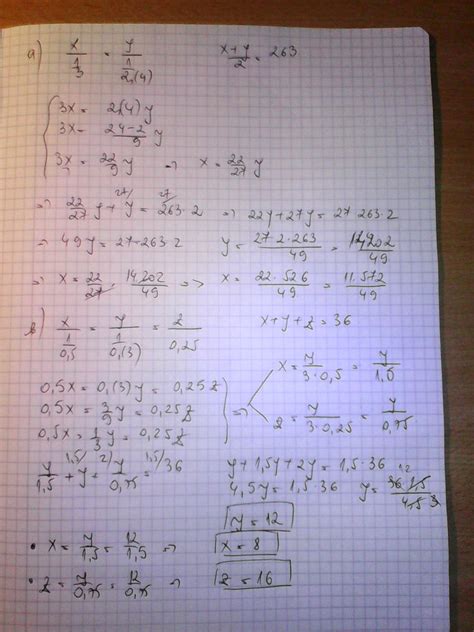 a) x/(1/3) = y/(1/2,(4))    (x+y)/2 = 263
3x = 2,(4) y
3x = (24-2)/9 y
3x = 22/9 y => x = 22/27 y
=> 22/27 y + 27/ y = 27/ 263·2 => 22y + 27y = 27·263·2
=> 49y = 27·263·2    y = (27·2·263)/49 = 14202/49
=> x = 22/27 · 14.202/49 => x = (22·526)/49 = 11.572/49
b) x/(1/0,5) = y/(1/0,(3)) = z/0,25    x+y+z = 36
0,5x = 0,(3)y = 0,25z
0,5x = 3/9 y = 0,25z
0,5x = 1/3 y = 0,25z
=> x = y/(3·0,5) = y/1,5
z = y/(3·0,25) = y/0,75
y/1,5 + 1,5/ y + 2/ y/0,75 = 1,5/ 36    y + 1,5y + 2y = 1,5·36
4,5y = 1,5·36    y = (36·1,5)/4,5
y = 12
• x = y/1,5 = 12/1,5 => x = 8
• z = y/0,75 = 12/0,75 => z = 16